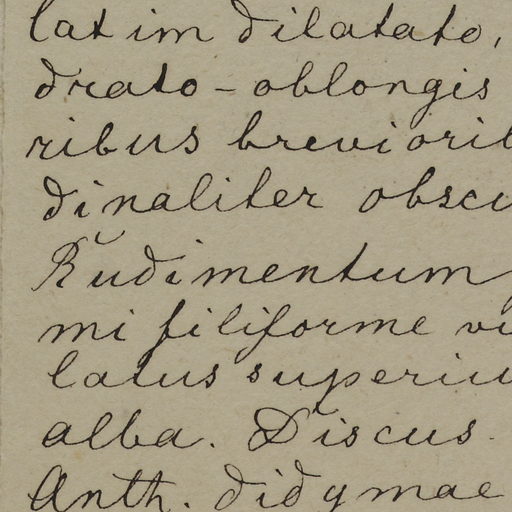 latim dilatato,
drato-oblongis
ribus breviorib
dinaliter obscu
Rudimentum
mi filiforme vi
latus superiu
alba. Discus
Anth. didymae